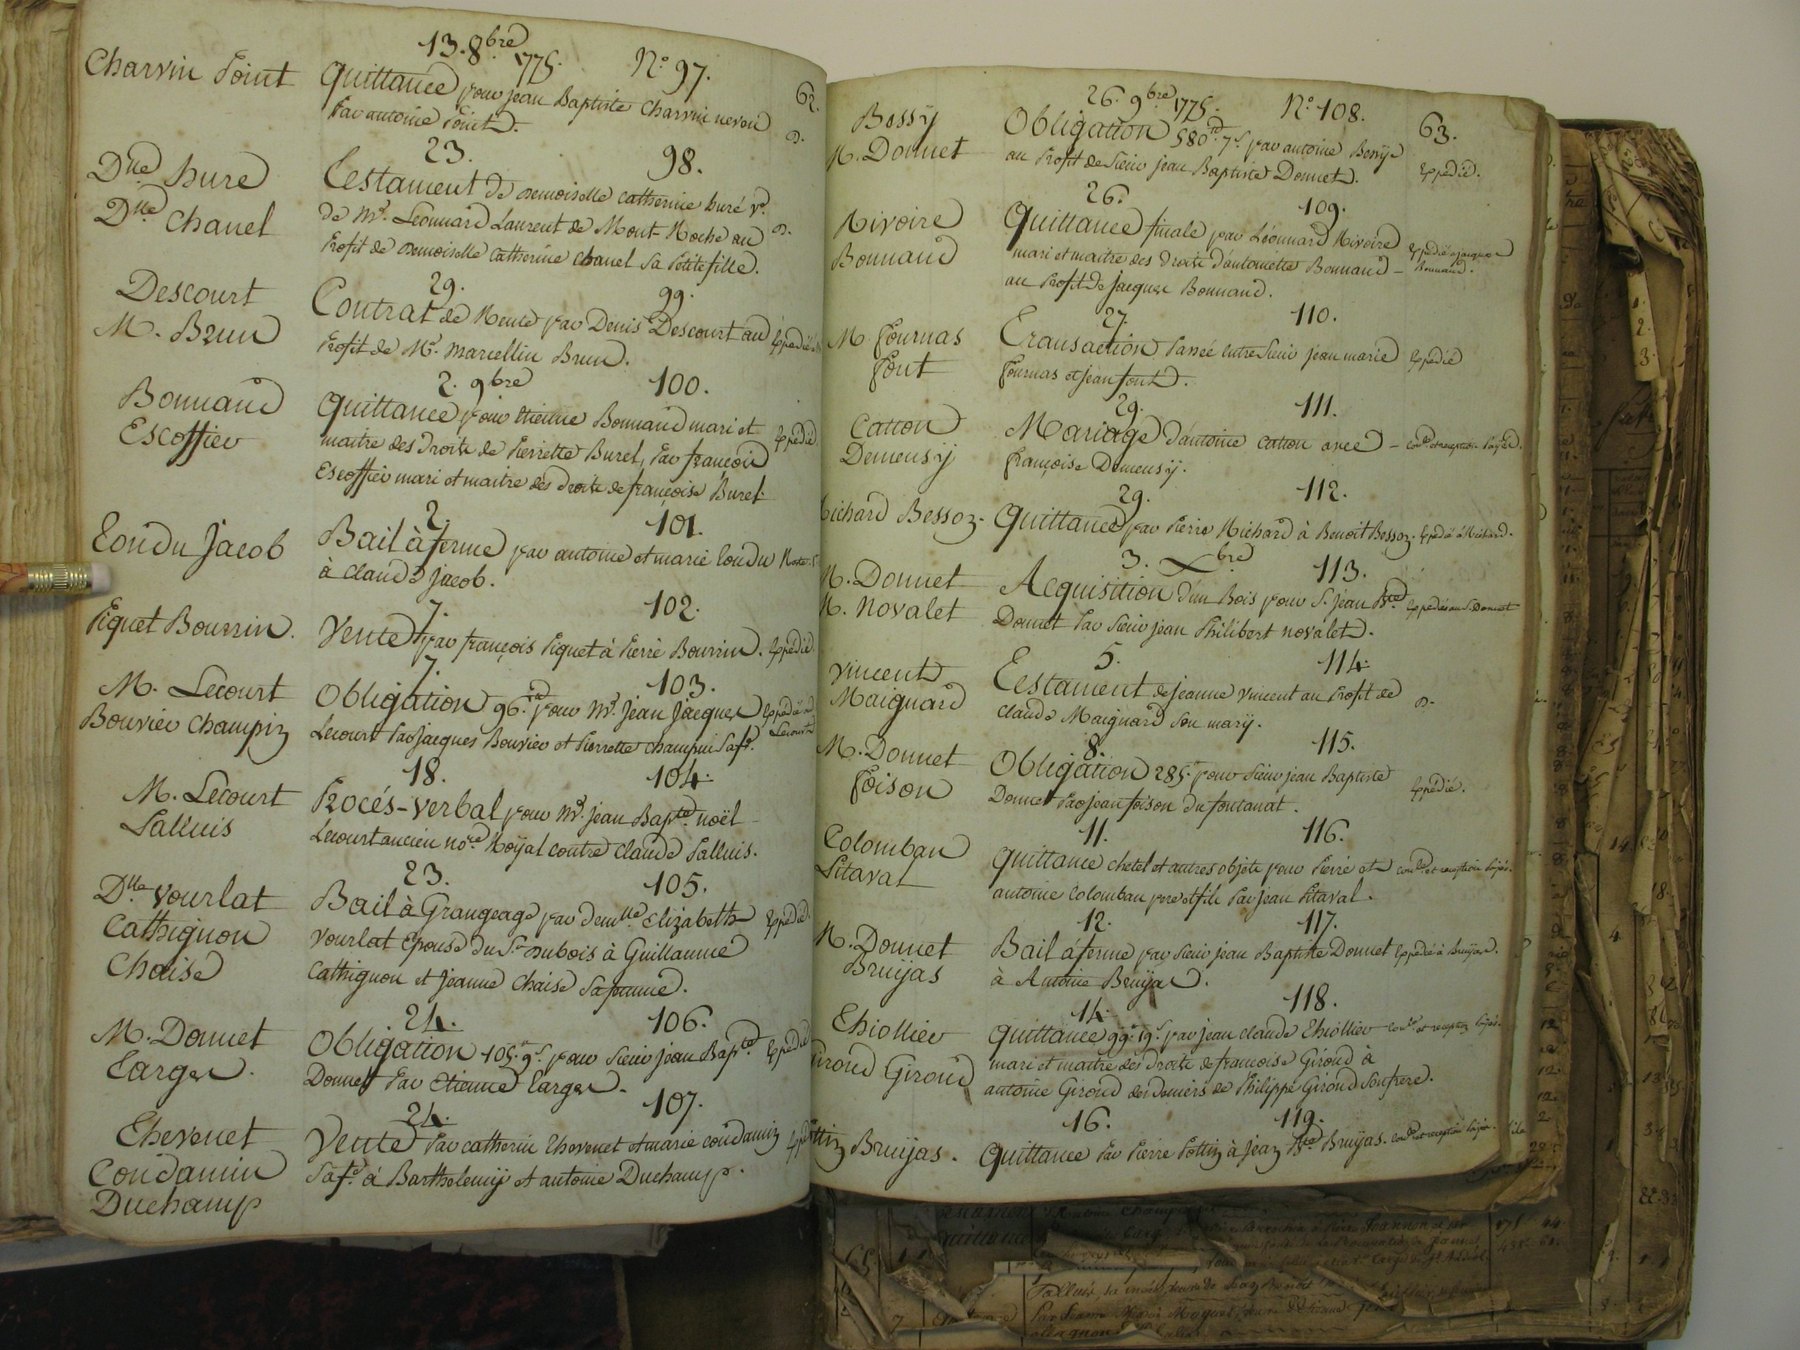 13. 8bre 1775. N.° 97. 62.
Charvin Point Quittance pour jean Baptiste Charvin neveu
Par antoine Point.
23. 98.
Dlle huré Testament de Demoiselle Catherine huré Ve.
Dlle Chanel de Mr. Léonnard Laurent de Mont-Roche au
Profit de Demoiselle Catherine Chanel Sa Petite fille.
29. 99.
Descourt Contrat de Vente par Denis Descourt au Expédié
M. Brun Profit de Mr. Marcellin Brun.
2. 9bre 100.
Bonnand Quittance pour Etienne Bonnand mari et Expédié
Escoffier maitre des Droits de Pierrette Burel, Par françois
Escoffier mari et maitre des Droits de françoise Burel.
2. 101.
Tondu Jacob Bail à ferme par antoine et marie tondu
à Claude Jacob.
7. 102.
Piquet Bourrin. Vente par françois Piquet à Pierre Bourrin. Expédié
7. 103.
M. Lecourt Obligation 96.tt pour Mr. Jean Jacques Expédié à
Bouvier Champin Lecourt Par Jacques Bouvier et Pierrette champin Safe. Lecourt
18. 104.
M. Lecourt Procés-verbal pour Mr. jean Bapte. noël
Palluis Lecourt ancien nore Royal contre Claude Palluis.
23. 105.
Dlle Vourlat Bail à Grangeage par demlle. Elizabeth Expédié.
Cathignon Vourlat Epouse du Sr. Dubois à Guillaume
Chaise Cathignon et Jeanne Chaise Sa femme.
24. 106.
M. Donnet Obligation 105tt. 9s. pour Sieur jean Bapte. Expédié
Larger. Donnet Par Etienne Larger.
24. 107.
Thevenet Vente Par Catherin Thevenet et marie Condamin
Condamin Safe. à Barthelemy et antoine Duchamp.
Duchamp
26. 9bre 1775. N.° 108. 63.
Bessÿ Obligation 580tt. 7s. par antoine Bessÿ Expédié.
M. Donnet au Profit de Sieur jean Baptiste Donnet.
26. 109.
Rivoire Quittance finale par Léonnard Rivoire Expédié à jacques
Bonnand mari et maitre des Droits d'antoinette Bonnand – Bonnand.
au Profit de jacques Bonnand.
27. 110.
M. fournas Transaction Passée entre Sieur jean marie Expédié
font fournas et jean font.
29. 111.
Catton Mariage d'antoine Catton avec – conlle et reception Payés.
Demeusÿ françoise Demeusÿ.
29. 112.
Richard Bessoz. Quittance par Pierre Richard à Benoît Bessoz. Expédié à Richard.
3. Xbre 113.
M. Donnet Acquisition d'un Bois pour Sr. jean Bte. Expédiés au Sr. Donnet
M. Novalet Donnet Par Sieur jean Philibert novalet.
5. 114.
Vincent Testament de jeanne Vincent au Profit de
Maignard Claude Maignard Son marÿ.
8. 115.
M. Donnet Obligation 285tt. pour Sieur jean Baptiste
foison Donnet Par jean foison du fontanat. Expédié.
11. 116.
Colomban Quittance chetel et autres objets pour Pierre et conlle et reception Payés.
Pitaval antoine Colomban pere et fils Par jean Pitaval.
12. 117.
M. Donnet Bail à ferme par Sieur jean Baptiste Donnet Expédié à Bruÿas.
Bruÿas à Antoine Bruÿas.
14. 118.
Thiollier Quittance 99tt. 19s. par jean claude Thiollier conlle et reception Payés.
Giroud Giroud mari et maitre des Droits de françoise Giroud à
antoine Giroud des deniers de Philippe Giroud Son frere.
16. 119.
Pottin Bruÿas. Quittance Par Pierre Pottin à jean Bte. Bruÿas. conlle et reception Payés.